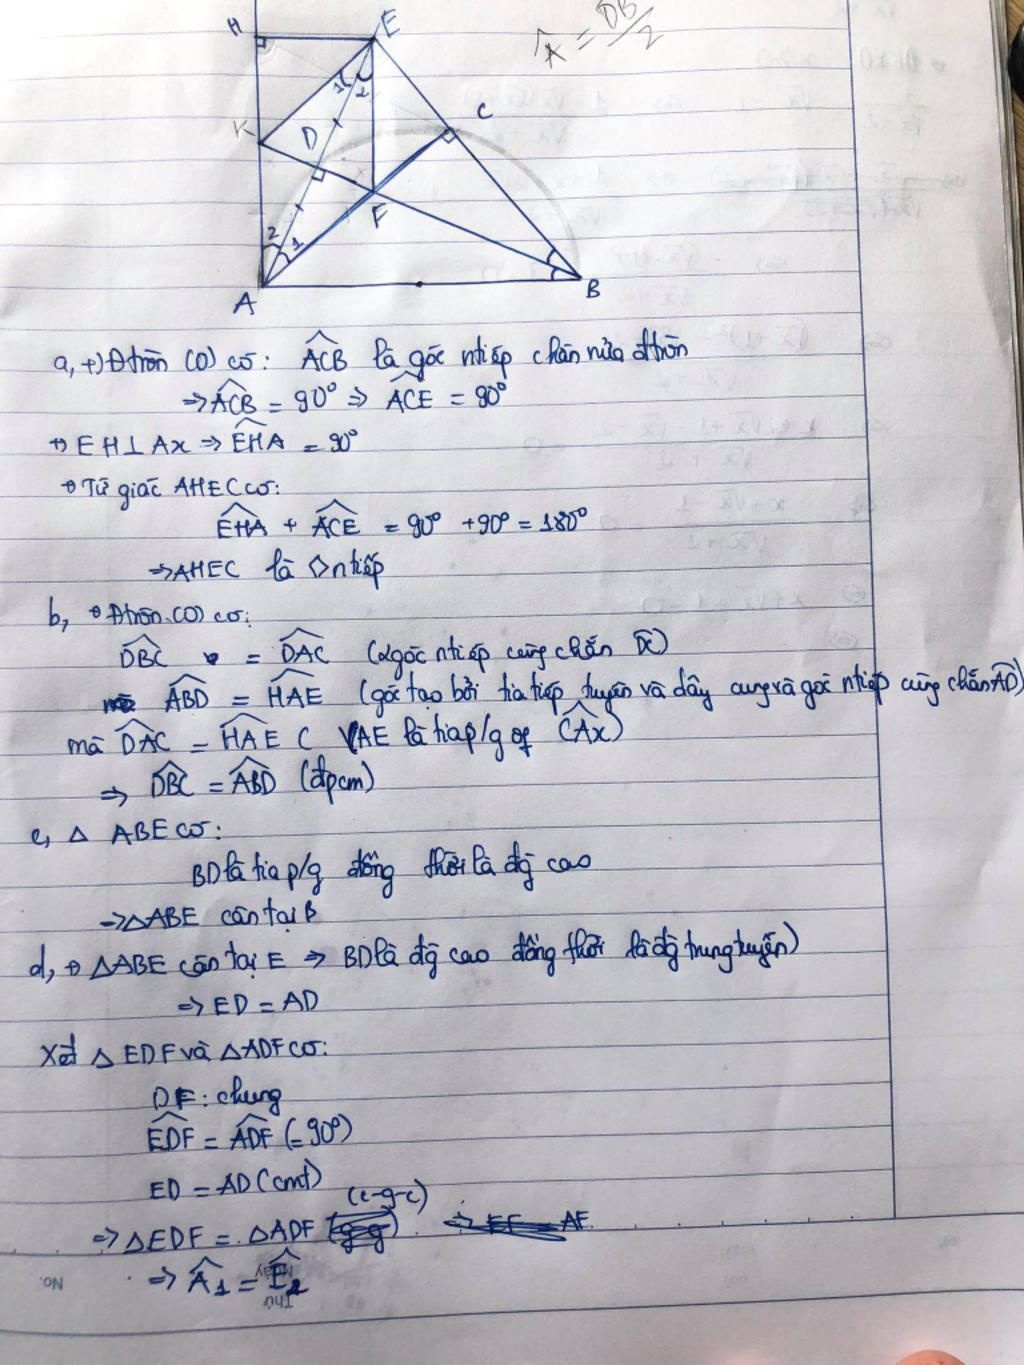 H
E
Â = DB/2
1 2
C
K
D
F
2 1
A
B
a, +) Đtròn (O) có: ACB là góc ntiếp chắn nửa đtròn
⇒ ACB = 90° ⇒ ACE = 90°
+) EH ⊥ Ax ⇒ EHA = 90°
+) Tứ giác AHEC có:
EHA + ACE = 90° + 90° = 180°
⇒ AHEC là ◇ ntiếp
b, +) Đtròn (O) có:
DBC = DAC (2 góc ntiếp cùng chắn DC)
ABD = HAE (góc tạo bởi tia tiếp tuyến và dây cung và góc ntiếp cùng chắn AD)
mà DAC = HAE ( VAE là tia p/g of CAx)
⇒ DBC = ABD (đpcm)
c, △ ABE có:
BD là tia p/g đồng thời là đg cao
⇒ △ABE cân tại B
d, +) △ABE cân tại E ⇒ BD là đg cao đồng thời là đg trung tuyến)
⇒ ED = AD
Xét △ EDF và △ADF có:
DF: chung
EDF = ADF (= 90°)
ED = AD (cmt)
(c-g-c)
⇒ △EDF = △ADF AF
⇒ Â1 = Ê2
No.
Thứ